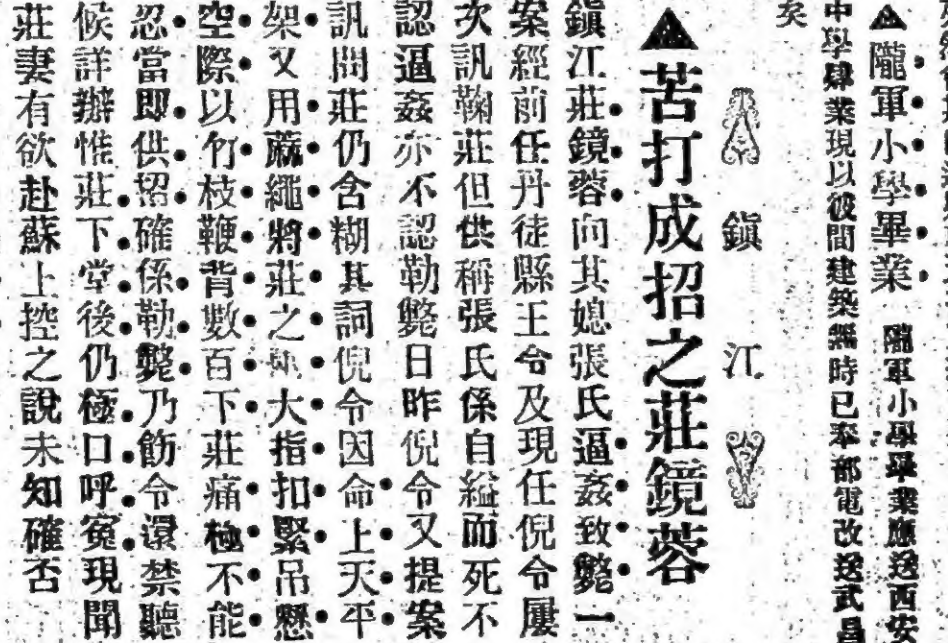 ▲隴軍小學畢業 隴軍小學畢業應送西安
中學肄業現以彼間建築無時已奉部電改送武昌
矣
鎮江
▲苦打成招之莊鏡蓉
鎮江莊鏡蓉向其媳張氏逼姦致斃一
案經前任丹徒縣王令及現任倪令屢
次訊鞠莊但供稱張氏係自縊而死不
認逼姦亦不認勒斃日昨倪令又提案
訊問莊仍含糊其詞倪令因命上天平
架又用蔴繩將莊之大指扣緊吊懸
空際以竹枝鞭背數百下莊痛極不能
忍當即供招確係勒斃乃飭令還禁聽
候詳辦惟莊下堂後仍極口呼冤現聞
莊妻有欲赴蘇上控之說未知確否